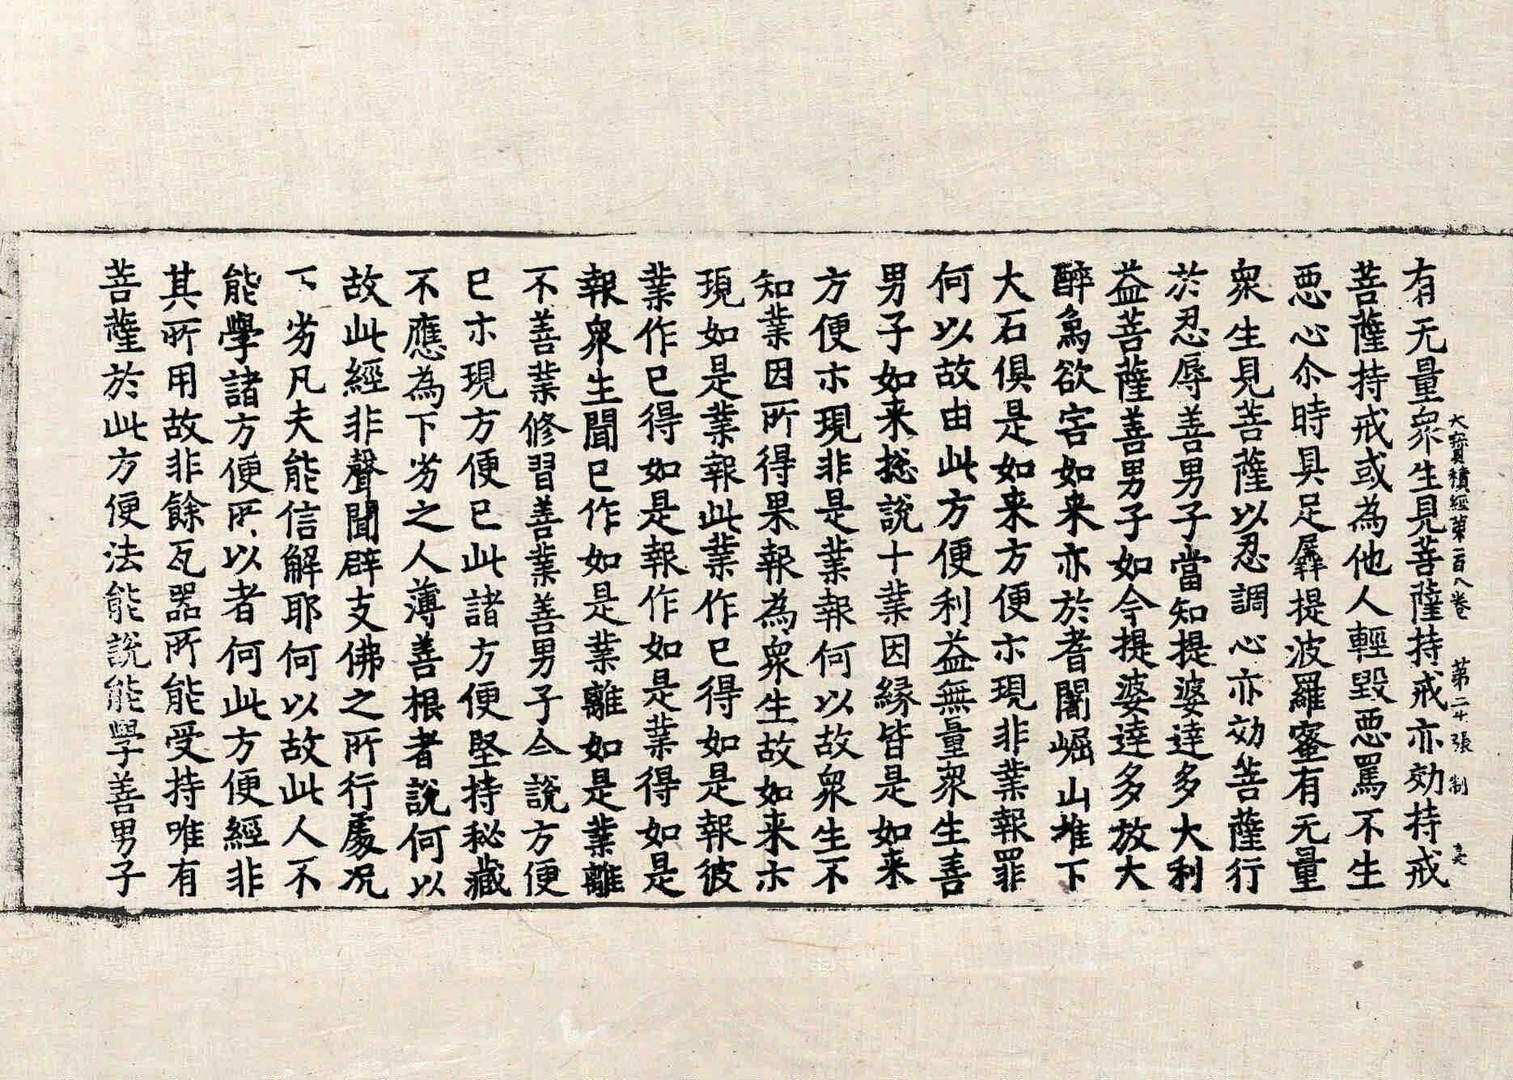 大寶積經苐一百八卷 苐二十張 制
有无量衆生見菩薩持戒亦効持戒
菩薩持戒或為他人輕毀惡罵不生
惡心尒時具足羼提波羅蜜有无量
衆生見菩薩以忍調心亦効菩薩行
於忍辱善男子當知提婆達多大利
益菩薩善男子如今提婆達多放大
醉象欲害如来亦於耆闍崛山推下
大石俱是如来方便示現非業報罪
何以故由此方便利益無量衆生善
男子如来揔說十業因緣皆是如来
方便示現非是業報何以故衆生不
知業因所得果報為衆生故如来示
現如是業報此業作已得如是報彼
業作已得如是報作如是業得如是
報衆生聞已作如是業離如是業離
不善業修習善業善男子今說方便
已示現方便已此諸方便堅持秘藏
不應為下劣之人薄善根者說何以
故此經非聲聞辟支佛之所行處况
下劣凡夫能信解耶何以故此人不
能學諸方便所以者何此方便經非
其所用故非餘瓦器所能受持唯有
菩薩於此方便法能說能學善男子